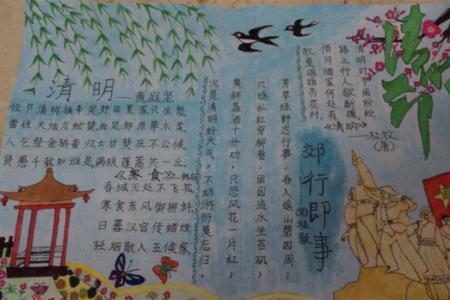 清明
清明时节雨纷纷,
路上行人欲断魂。
借问酒家何处有,
牧童遥指杏花村。
《清明》
——杜牧
(唐)
郊行即事
(宋)程颢
芳草绿野恣行事,春入遥山碧四周;
兴逐乱红穿柳巷,固因流水坐苔矶;
莫辞盏酒十分劝,只恐风花一片红;
况是清明好天气,不妨游衍莫忘归。
清明——黄庭坚
佳节清明桃李笑野田荒冢只生愁
雷惊天地龙蛇蛰雨足郊原草木柔
人乞祭余骄妾妇士甘焚死不公侯
贤愚千载知谁是满眼蓬蒿共一丘
《寒食》
春城无处不飞花,
寒食东风御柳斜,
日暮汉宫传蜡烛,
轻烟散入五侯家